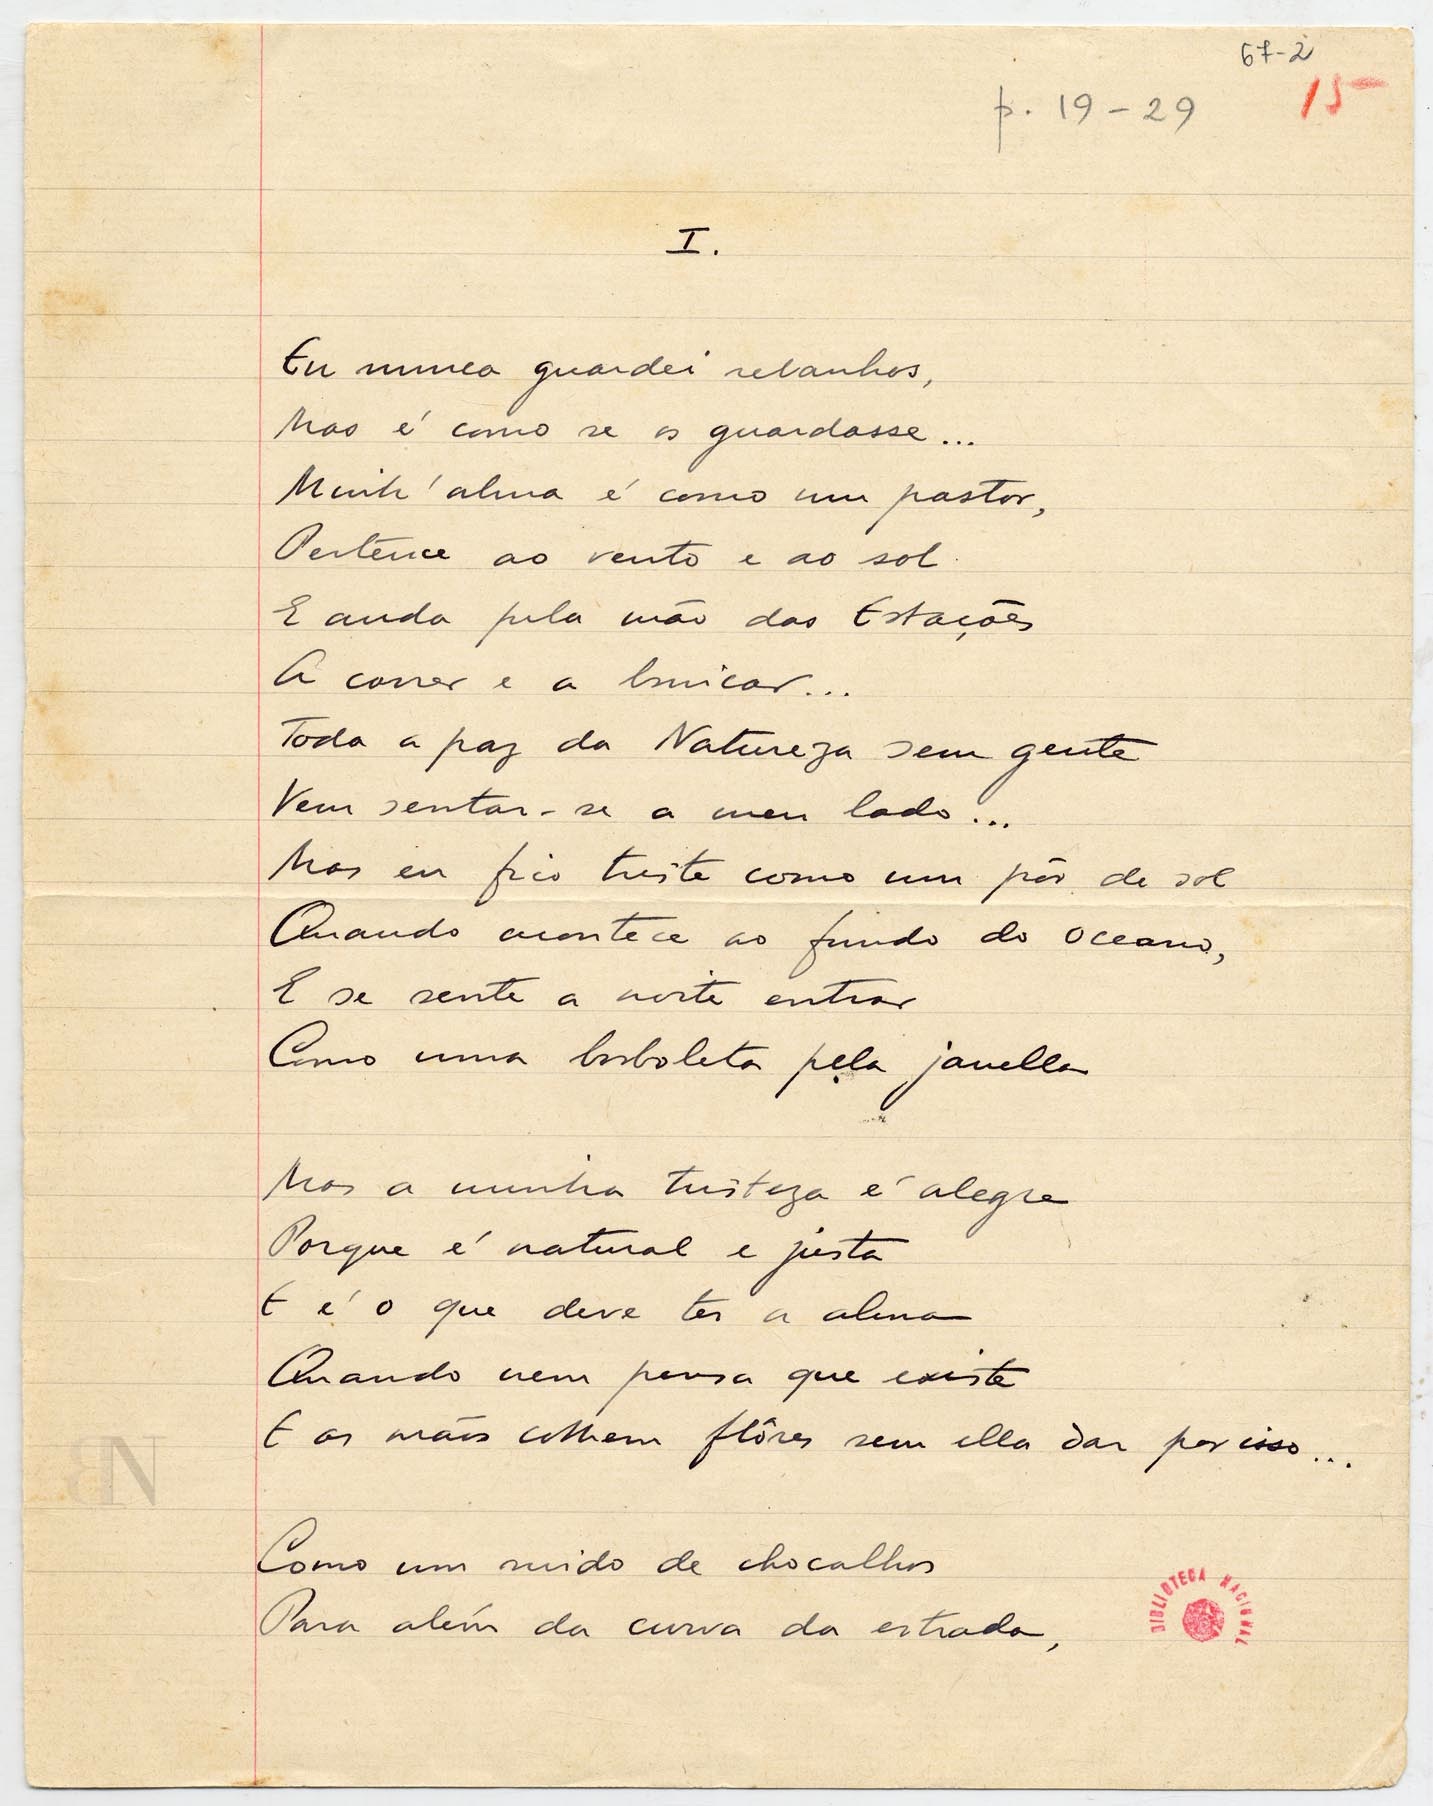 67-2
p. 19-29
15
I.
Eu nunca guardei rebanhos,
Mas é como se os guardasse...
Minh'alma é como um pastor,
Pertence ao vento e ao sol
E anda pela mão das Estações
A correr e a brincar...
Toda a paz da Natureza sem gente
Vem sentar-se a meu lado...
Mas eu fico triste como um pôr de sol
Quando acontece ao fundo do oceano,
E se sente a noite entrar
Como uma borboleta pela janella
Mas a minha tristeza é alegre
Porque é natural e justa
E é o que deve ter a alma
Quando nem pensa que existe
E as mãos colhem flôres sem ella dar por isso...
Como um ruido de chocalhos
Para além da curva da estrada,
BIBLIOTECA NACIONAL
BN